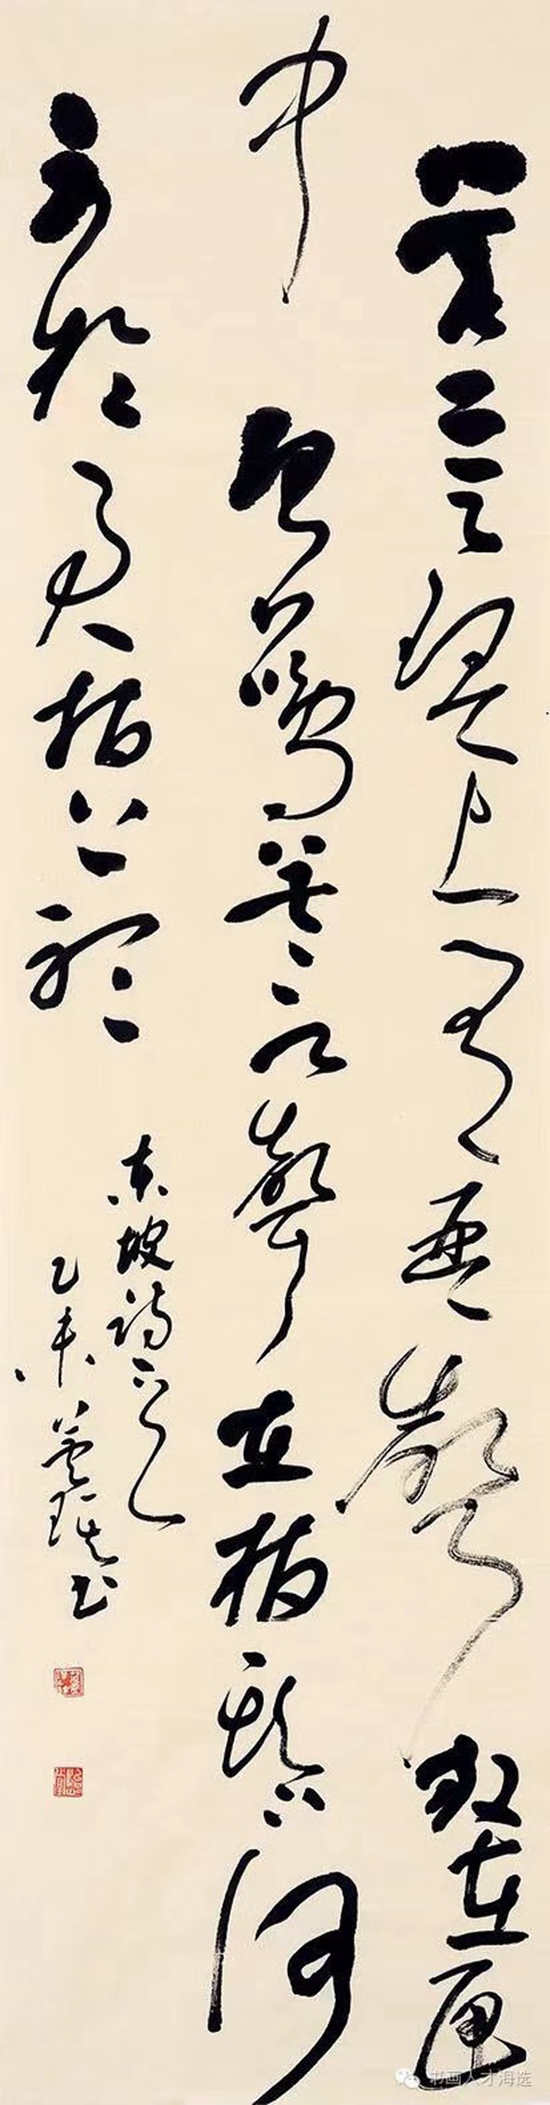 若言琴上有琴聲放在匣
中何不鳴若言聲在指頭上何
不於君指上聽
東坡詩一首
乙未 書
书画人才海选